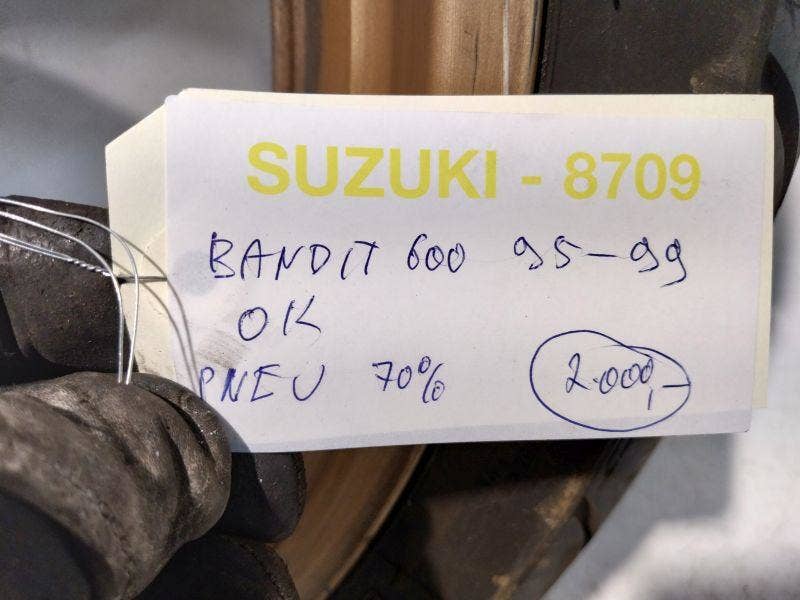 SUZUKI - 8709
BANDIT 600 95-99
OK
PNEU 70% 2.000,-